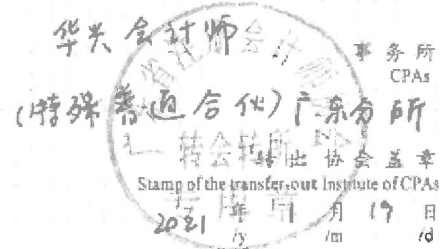 华兴会计师
事务所
CPAs
(特殊普通合伙)广东分所
转出协会盖章
Stamp of the transfer-out Institute of CPAs
2021年1月19日
/y /m /d